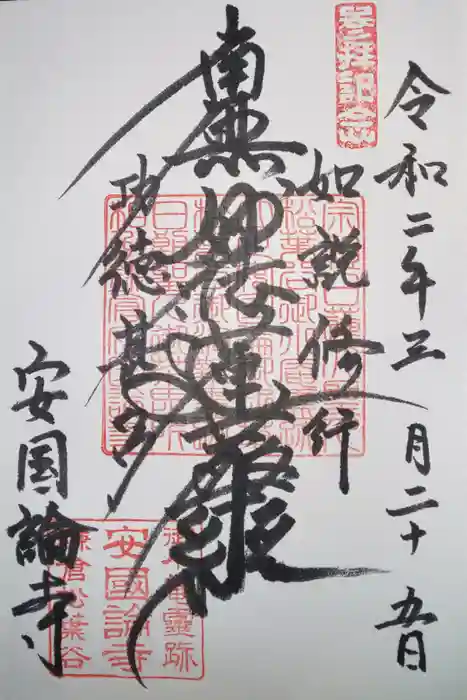 参拝記念
令和二年三月二十五日
如説修行
南無妙法蓮華経
功徳甚多
安国論寺
御小庵霊跡
安國論寺
鎌倉松葉谷